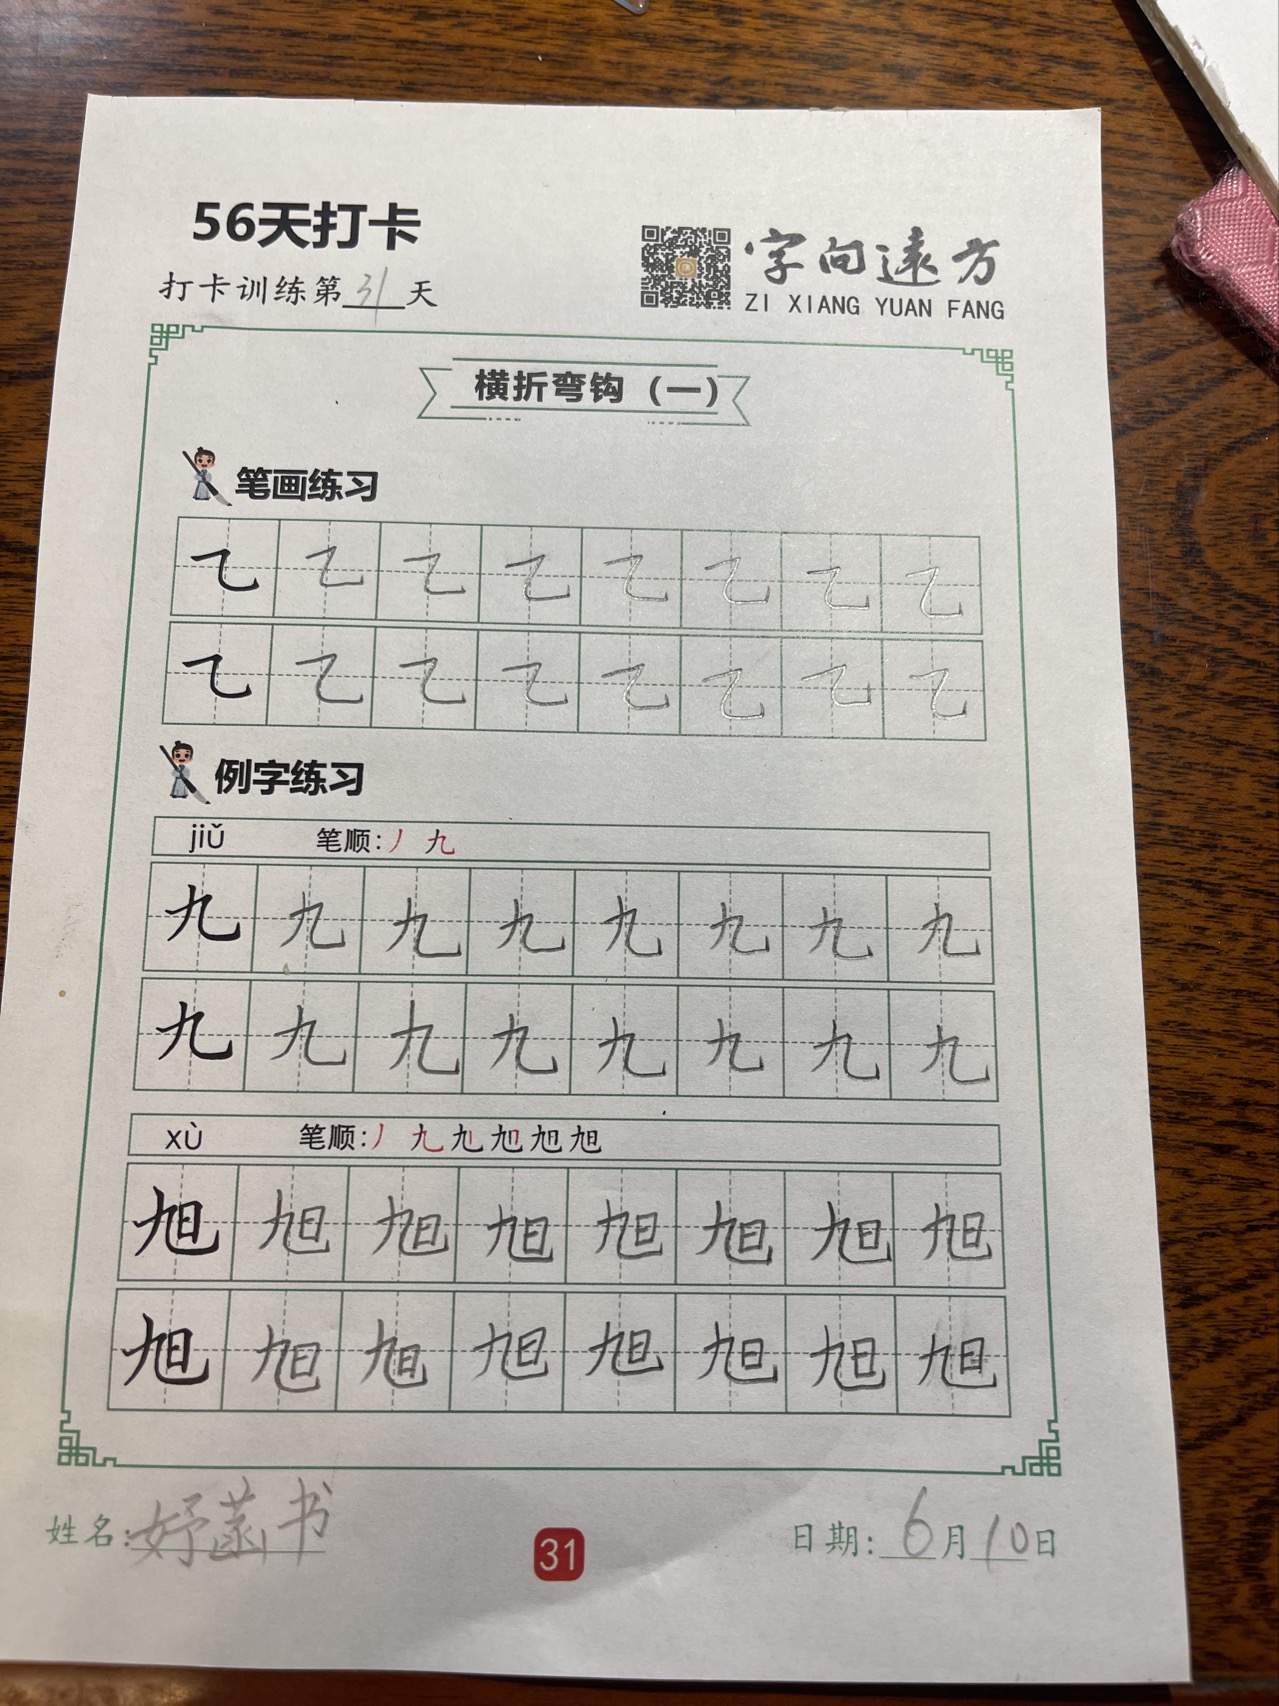 56天打卡
打卡训练第31天
字向遠方
ZI XIANG YUAN FANG
横折弯钩（一）
笔画练习
㇈ ㇈ ㇈ ㇈ ㇈ ㇈ ㇈ ㇈
㇈ ㇈ ㇈ ㇈ ㇈ ㇈ ㇈ ㇈
例字练习
jiǔ 笔顺:丿 九
九 九 九 九 九 九 九 九
九 九 九 九 九 九 九 九
xù 笔顺:丿 九 旭
旭 旭 旭 旭 旭 旭 旭 旭
旭 旭 旭 旭 旭 旭 旭 旭
姓名:妤菡书
31
日期:6月10日